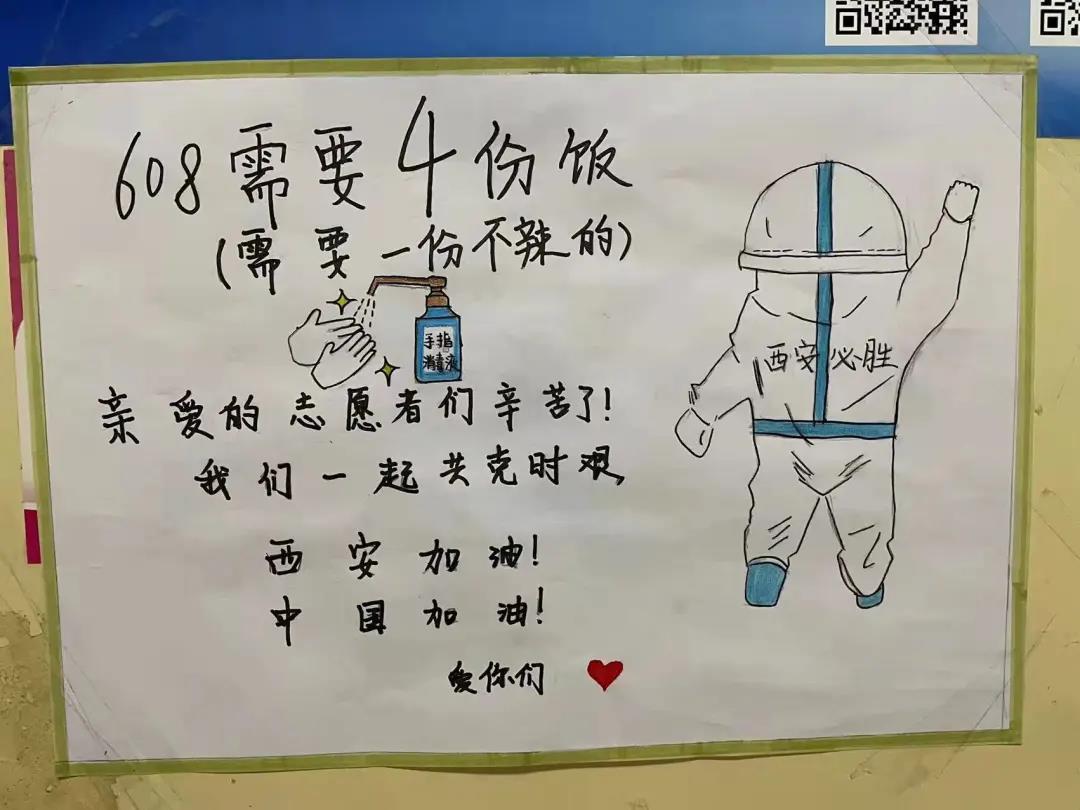 608需要4份饭
(需要一份不辣的)
手指
消毒液
西安必胜
亲爱的志愿者们辛苦了!
我们一起共克时艰
西安加油!
中国加油!
爱你们